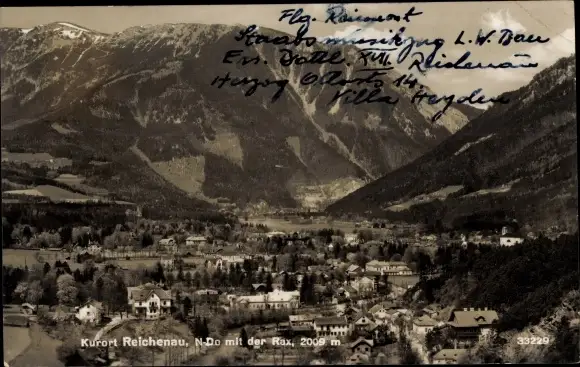 Flg. Reinort
Stabsmusikzug L. W. Bau
Ers. Batl. XVII. Reichenau
Herzog Ottostr 14
Villa Heyderer
Kurort Reichenau, N-Do mit der Rax, 2009 m
33229